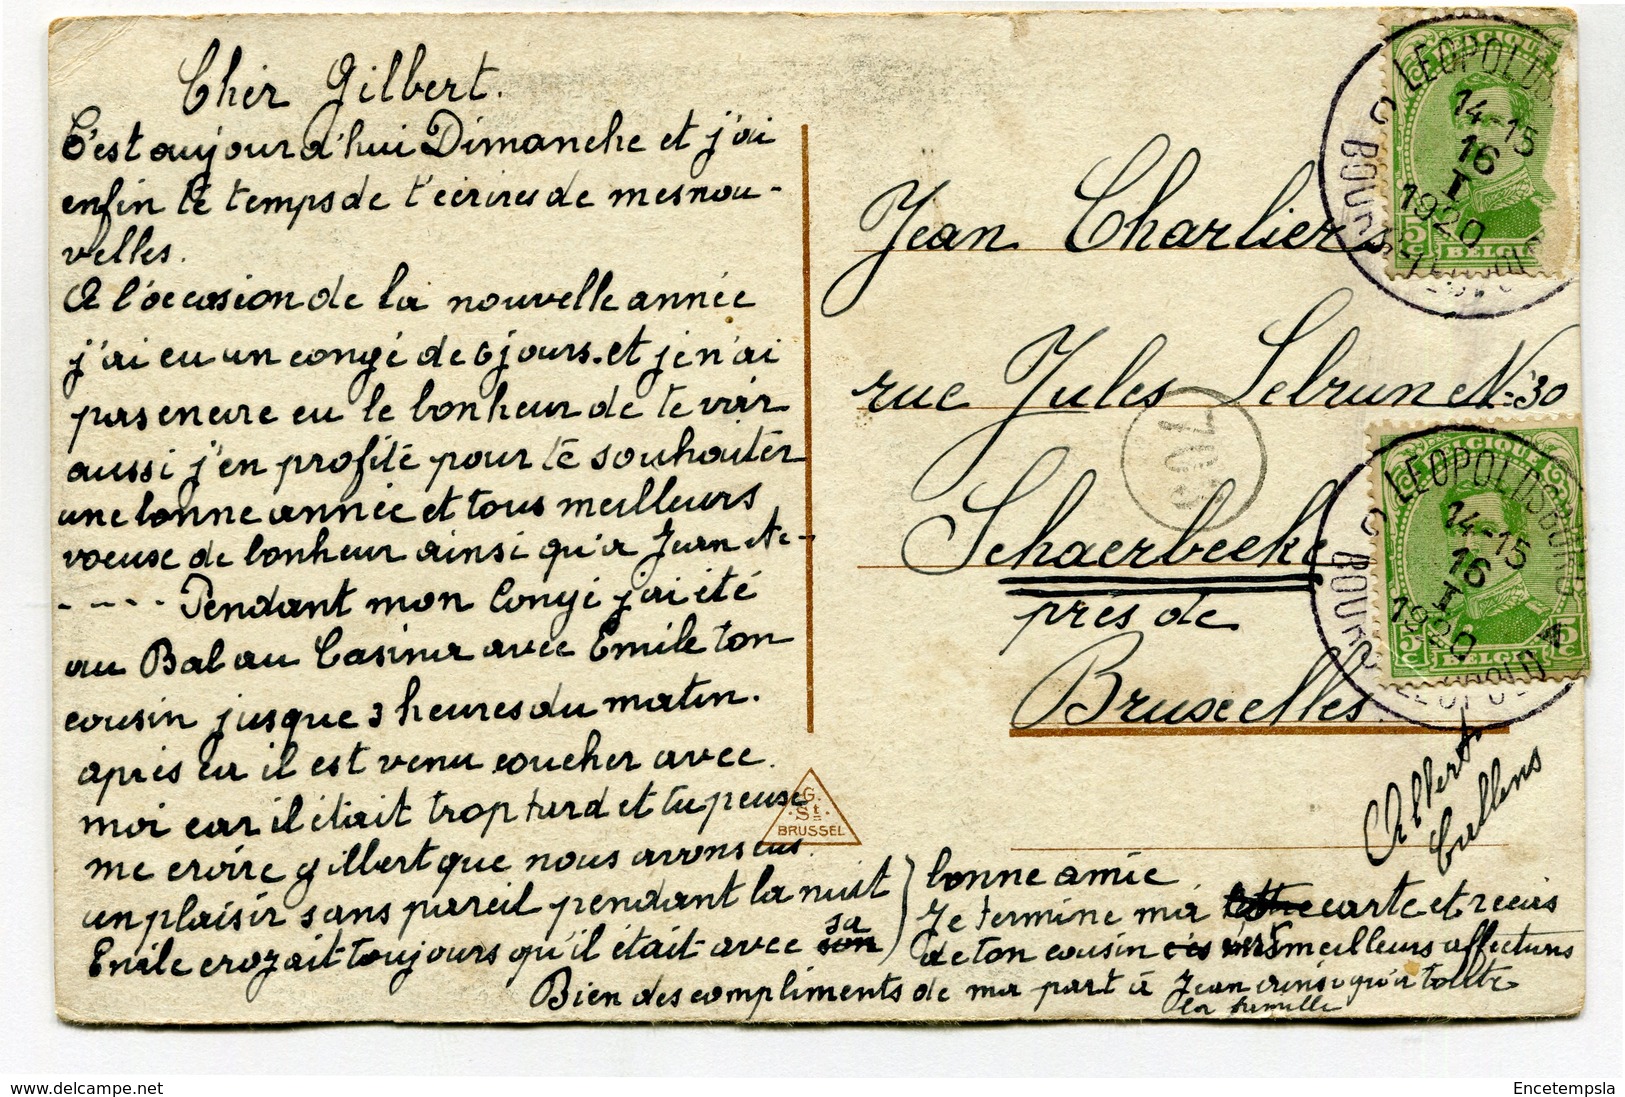 Cher Gilbert.
C'est aujourd'hui Dimanche et j'ai
enfin le temps de t'écrires de mes nou-
velles.
A l'occasion de la nouvelle année
j'ai eu un congé de 6 jours. et je n'ai
pas encore eu le bonheur de te voir
aussi j'en profite pour te souhaiter
une bonne année et tous meilleurs
voeuse de bonheur ainsi qu'a Jean etc-
- - - - Pendant mon Congé j'ai été
au Bal au Casino avec Emile ton
cousin jusque 3 heures du matin.
après ça il est venu coucher avec
moi car il était trop tard et tu peuse
me croire Gilbert que nous avons eus
un plaisir sans pareil pendant la nuit
Emile croyait toujours qu'il était avec son sa
bonne amie
Je termine ma carte et recois
de ton cousin ces meilleurs affections
Bien des compliments de ma part à Jean ainsi qu'a toutte
la famille
Albert
Callens
Jean Charliers
rue Jules Lebrun No 30
Schaerbeeke
près de
Bruxelles
G.
St
BRUSSEL
703
BELGIQUE
5 c
BELGIË
LEOPOLDSBURG
14-15
16
I
1920
C
BOURG-LEOPOLD
BELGIQUE
5 c
5 c
BELGIË
LEOPOLDSBURG
14-15
16
I
1920
C
BOURG-LEOPOLD
www.delcampe.net
Encetempsla